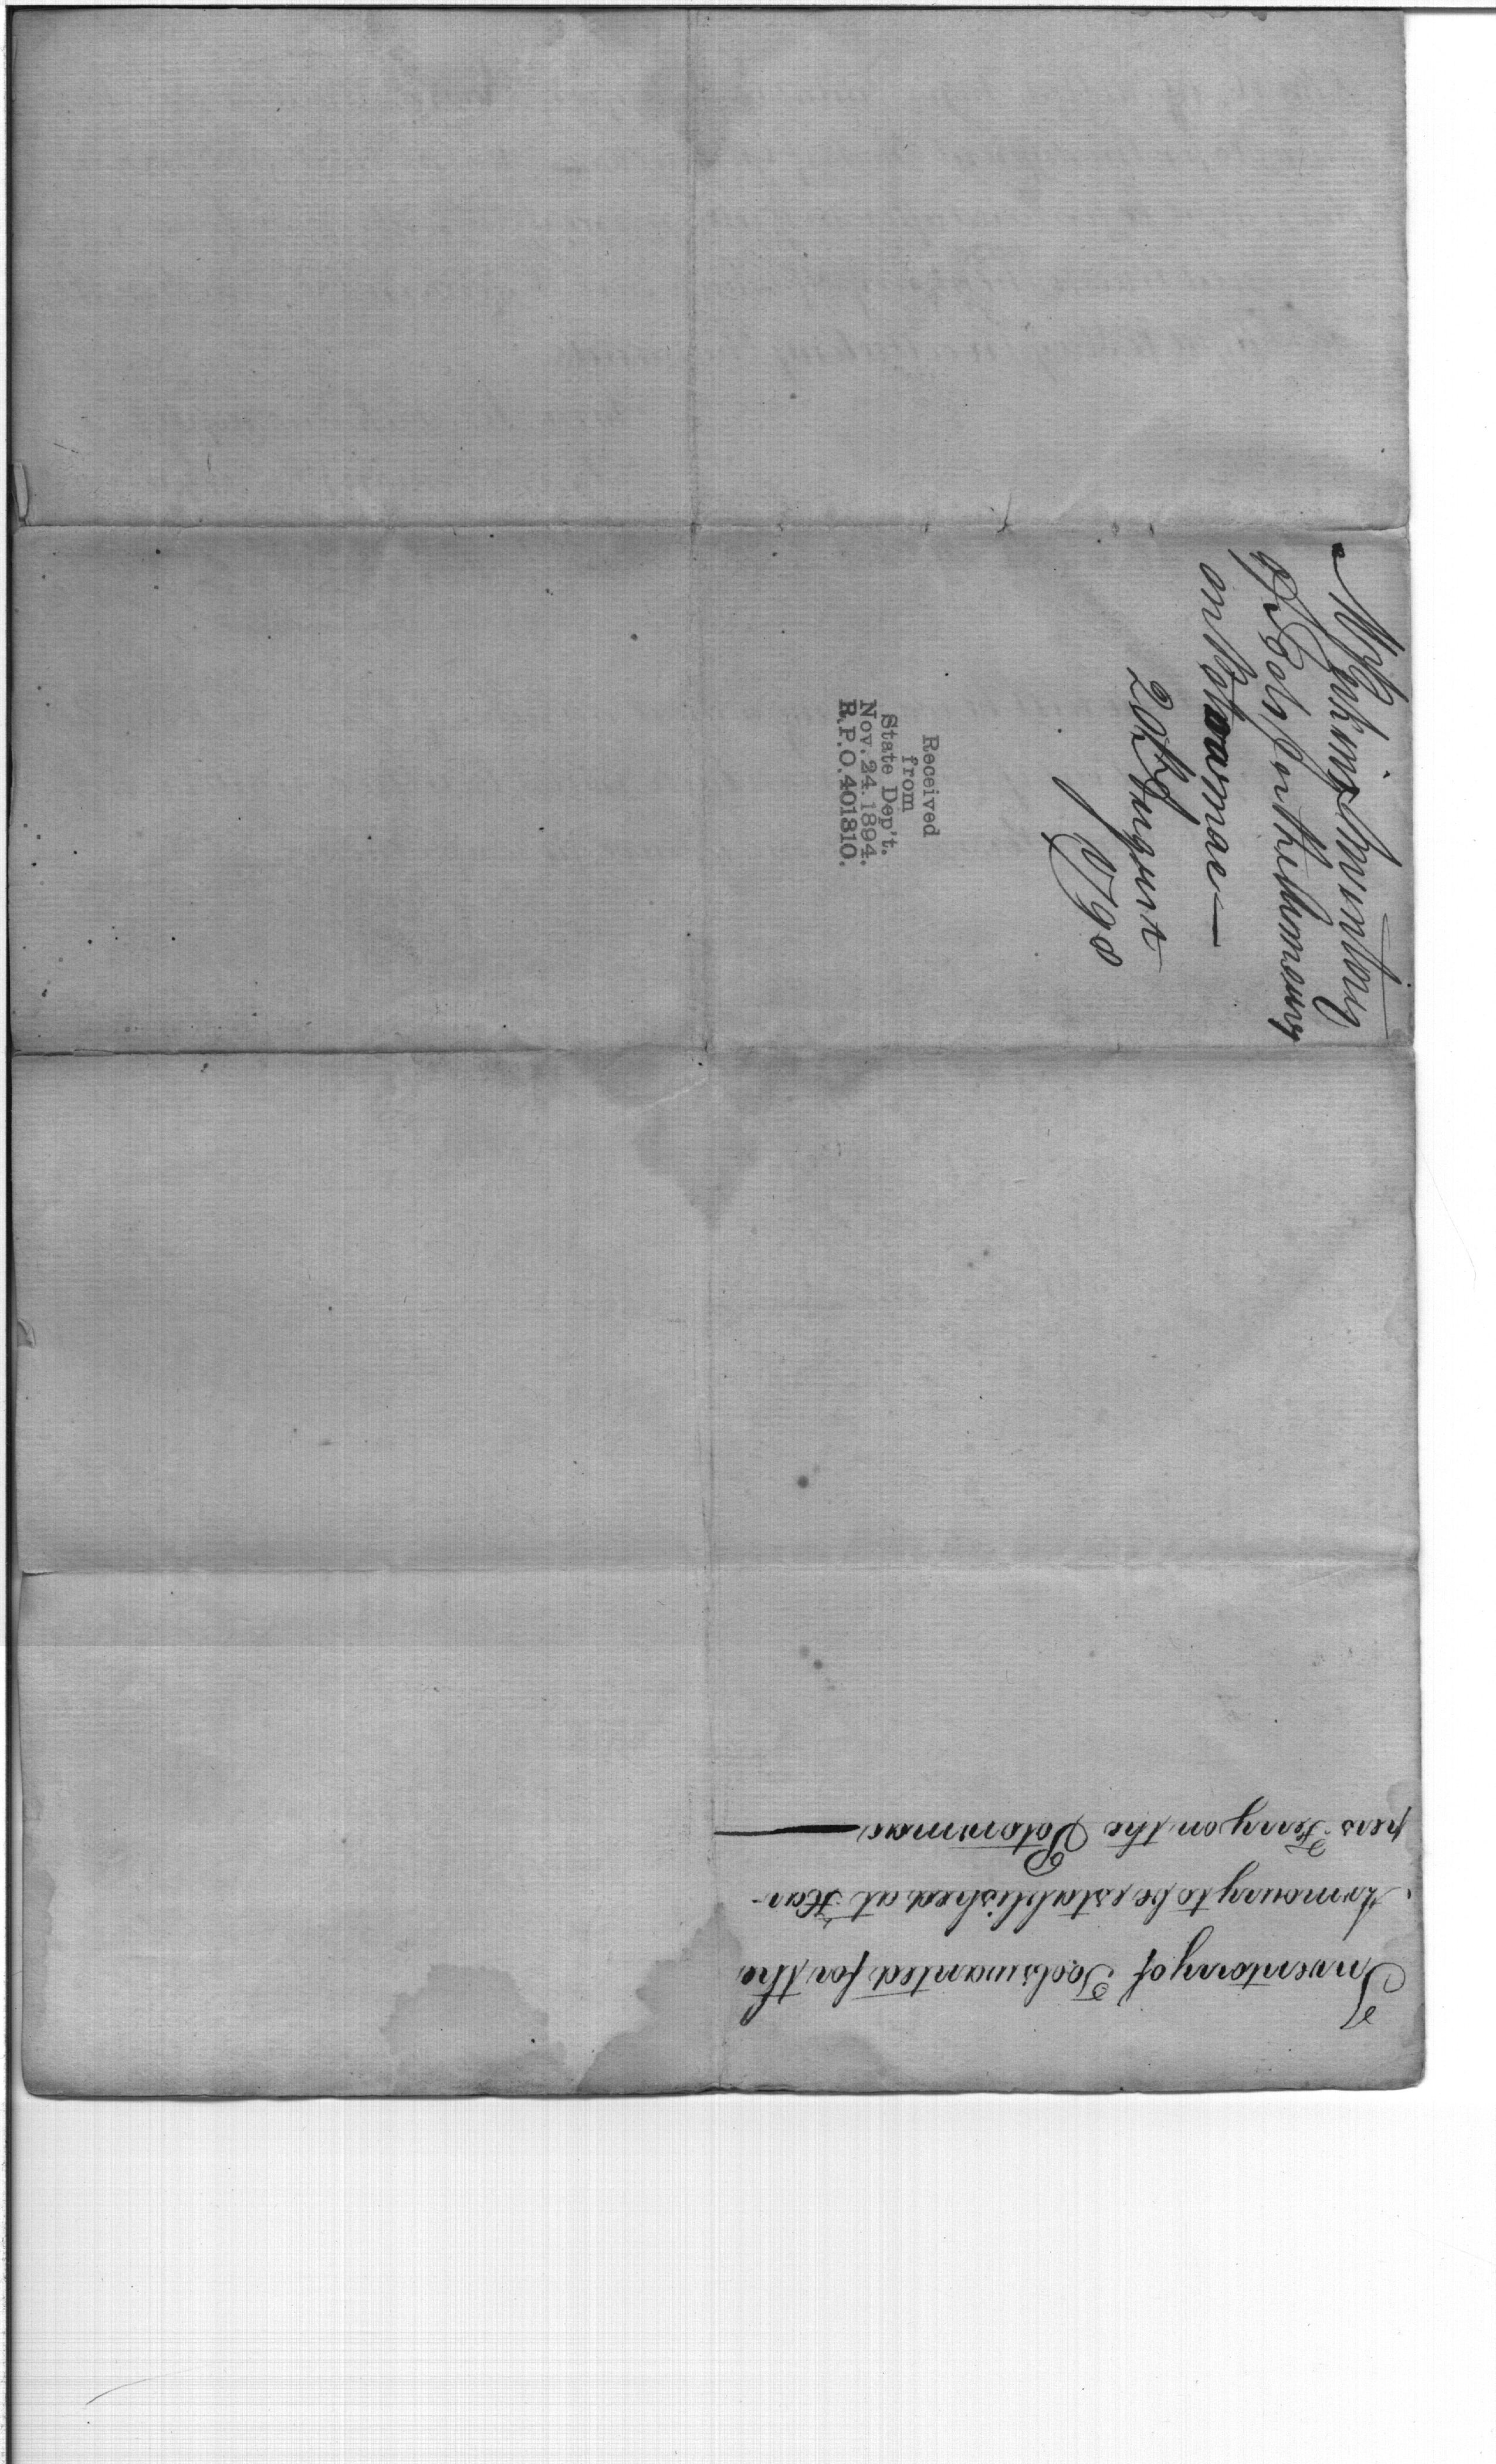 Mr Perkins Inventory
of Tools for the Armoury
on Potowmac —
20th August
1798
Received
from
State Dep't.
Nov. 24. 1894.
R.P.O. 401810.
Inventory of Tools wanted for the
Armoury to be established at Har-
pers Ferry on the Potowmac